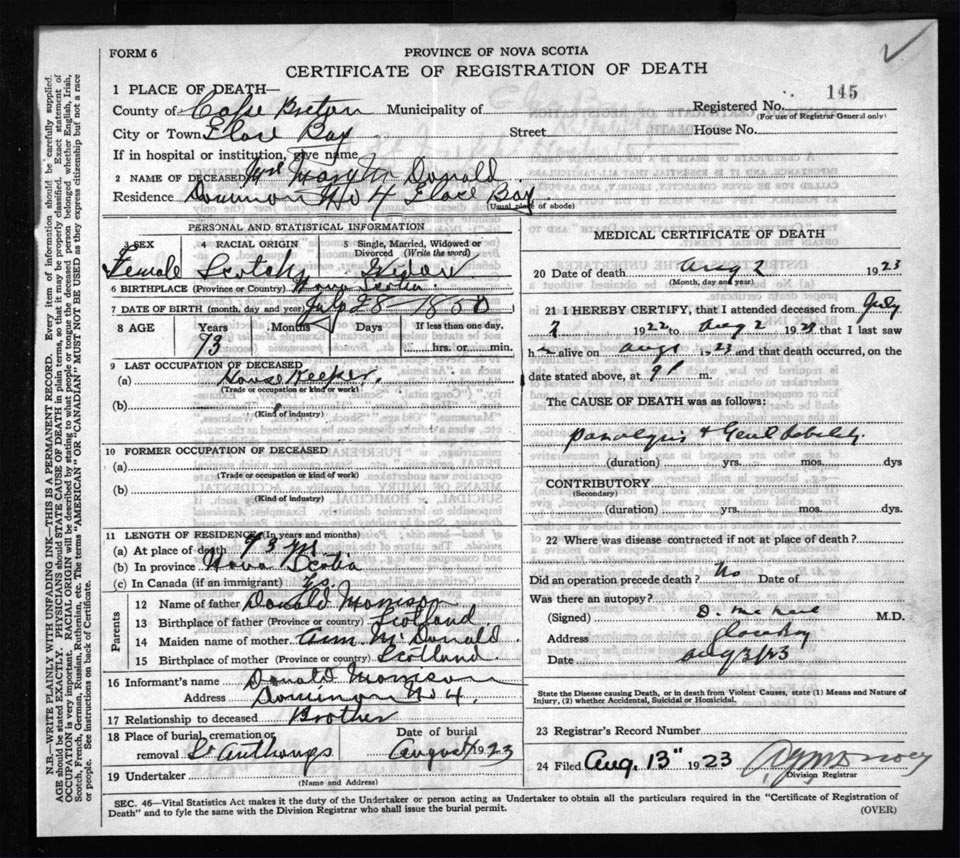 FORM 6
PROVINCE OF NOVA SCOTIA
CERTIFICATE OF REGISTRATION OF DEATH
145
1 PLACE OF DEATH—
County of Cape Breton Municipality of
Registered No.
(For use of Registrar General only)
City or Town Glace Bay Street House No.
If in hospital or institution, give name
2 NAME OF DECEASED Mrs Mary McDonald
Residence Dominion No 4 Glace Bay
(Usual place of abode)
PERSONAL AND STATISTICAL INFORMATION
3 SEX 4 RACIAL ORIGIN 5 Single, Married, Widowed or Divorced (Write the word)
Female Scotch Widow
6 BIRTHPLACE (Province or Country) Nova Scotia
7 DATE OF BIRTH (month, day and year) July 28 1850
8 AGE Years Months Days If less than one day,
73 hrs. or min.
9 LAST OCCUPATION OF DECEASED
(a) House Keeper
(Trade or occupation or kind of work)
(b)
(Kind of industry)
10 FORMER OCCUPATION OF DECEASED
(a)
(Trade or occupation or kind of work)
(b)
(Kind of industry)
11 LENGTH OF RESIDENCE (In years and months)
(a) At place of death 73 yrs
(b) In province Nova Scotia
(c) In Canada (if an immigrant) Yes
Parents
12 Name of father Donald Morrison
13 Birthplace of father (Province or country) Scotland
14 Maiden name of mother Ann McDonald
15 Birthplace of mother (Province or country) Scotland
16 Informant's name Donald Morrison
Address Dominion No 4
17 Relationship to deceased Brother
18 Place of burial, cremation or Date of burial
removal St Anthonys August 1923
19 Undertaker
(Name and Address)
MEDICAL CERTIFICATE OF DEATH
20 Date of death Aug 2 1923
(Month, day and year)
21 I HEREBY CERTIFY, that I attended deceased from July
1922 to Aug 2 192 that I last saw
h alive on Aug 1 192 and that death occurred, on the
date stated above, at 9 P m.
The CAUSE OF DEATH was as follows:
paralysis + Genl Debility
(duration) yrs. mos. dys
CONTRIBUTORY
(Secondary)
(duration) yrs. mos. dys.
22 Where was disease contracted if not at place of death?
Did an operation precede death? No Date of
Was there an autopsy?
(Signed) D. McNeil M.D.
Address Glace Bay
Date Aug 3/23
State the Disease causing Death, or in death from Violent Causes, state (1) Means and Nature of
Injury, (2) whether Accidental, Suicidal or Homicidal.
23 Registrar's Record Number
24 Filed Aug. 13" 1923
Division Registrar
SEC. 46—Vital Statistics Act makes it the duty of the Undertaker or person acting as Undertaker to obtain all the particulars required in the "Certificate of Registration of
Death" and to fyle the same with the Division Registrar who shall issue the burial permit.
(OVER)
N.B.—WRITE PLAINLY WITH UNFADING INK—THIS IS A PERMANENT RECORD. Every item of information should be carefully supplied.
AGE should be stated EXACTLY. PHYSICIANS should STATE CAUSE OF DEATH in plain terms, so that it may be properly classified. Exact statement of
OCCUPATION is very important. RACIAL ORIGIN will be described by stating to what people or tongue the deceased person belonged whether English, Irish,
Scotch, French, German, Russian, Ruthenian, etc. The terms "AMERICAN" OR "CANADIAN" MUST NOT BE USED as they express citizenship but not a race
or people. See instructions on back of Certificate.